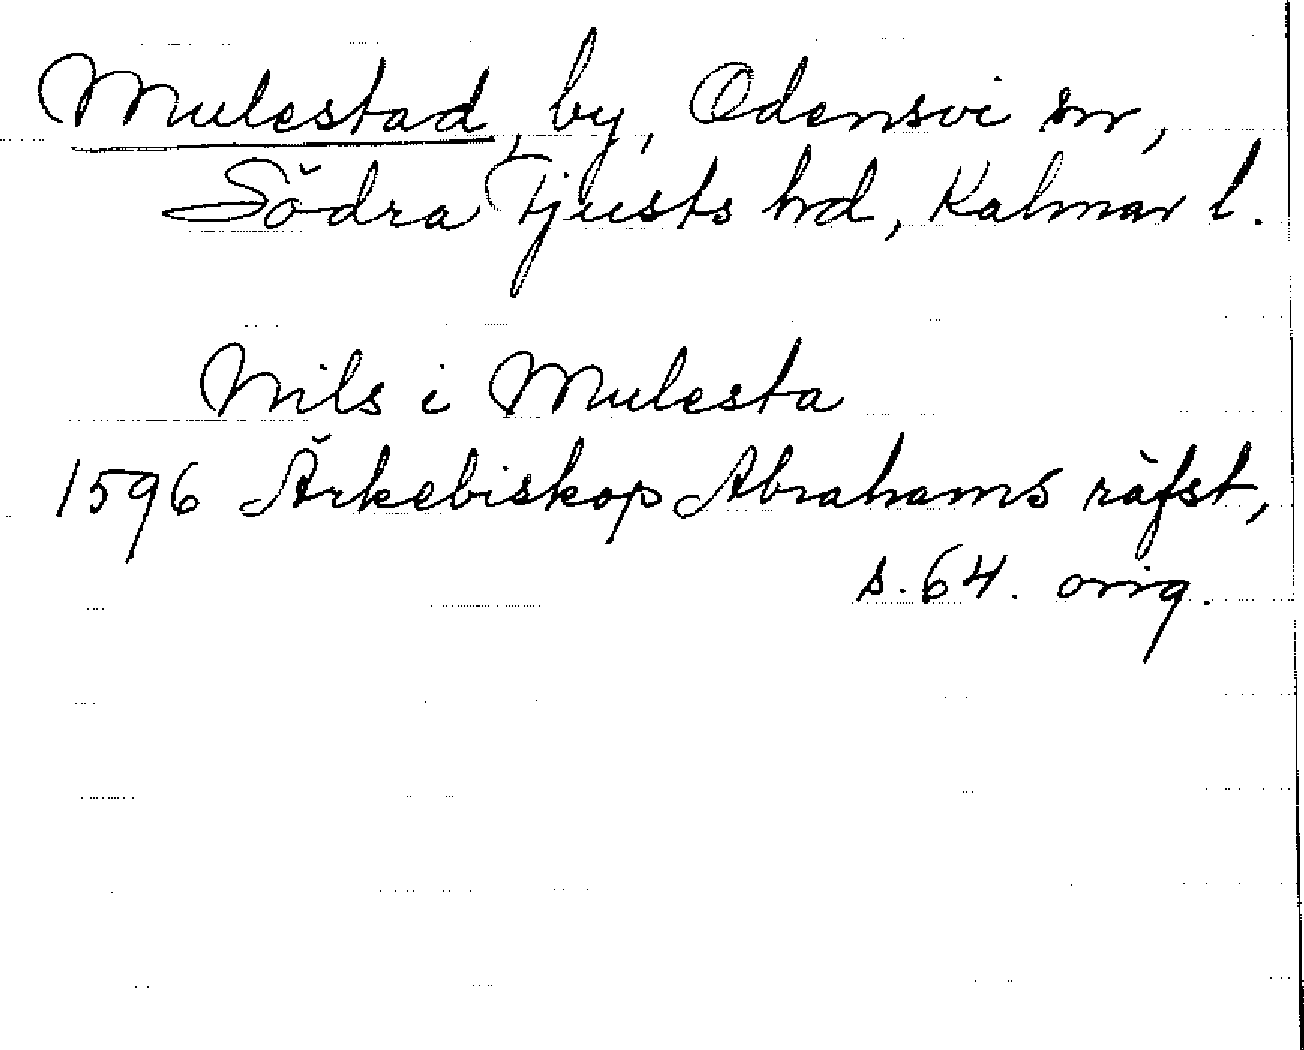 Mulestad, by, Odensvi sn,
Södra Tjusts hd, Kalmar l.
Nils i Mulesta
1596 Ärkebiskop Abrahams räfst,
s. 64. orig.